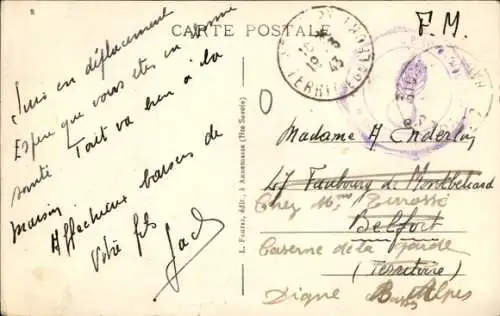 CARTE POSTALE
F.M.
Suis en déplacement
Espère que vous êtes en bonne
santé Tout va bien à la
maison
Affectueux baisers de
Votre fils
Jack
L. Fauraz, édit., à Annemasse (Hte Savoie)
Madame A Enderlin
47 Faubourg de Montbéliard
Chez Mme Terrasse
Belfort
Caserne de la
(Territoire)
Digne Basses Alpes